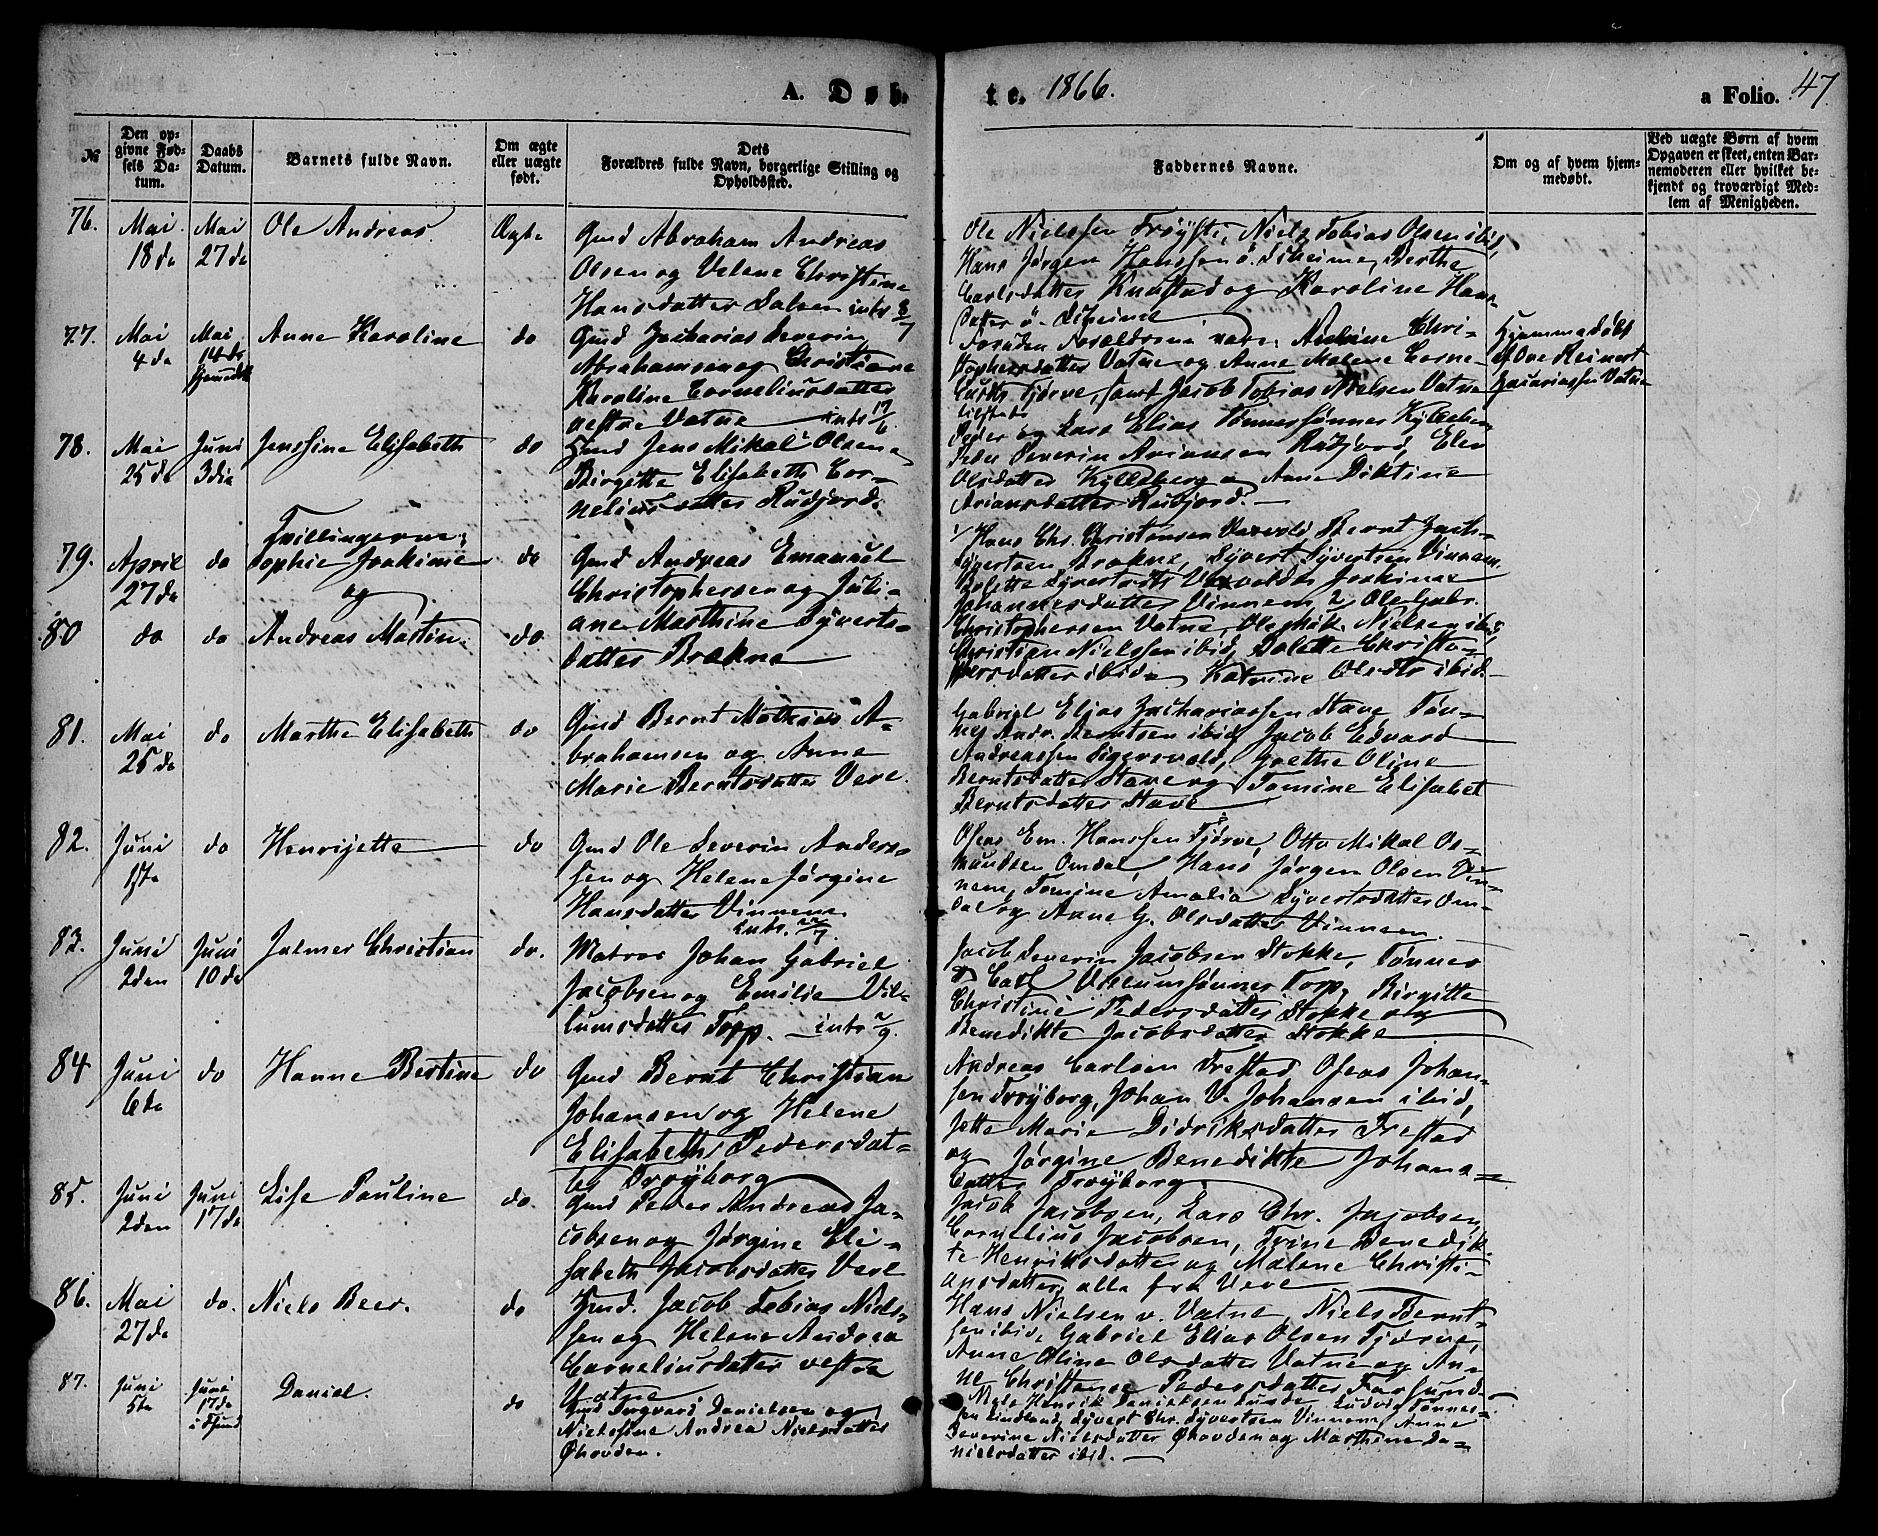 A. Døb-
te. 1866.
a Folio. 47
№
Den op-
givne Fød-
sels Da-
tum.
Daabs
Datum.
Barnets fulde Navn.
Om ægte
eller uægte
født.
Dets
Forældres fulde Navn, borgerlige Stilling og
Opholdssted.
Faddernes Navne.
Om og af hvem hjem-
medøbt.
Ved uægte Børn af hvem
Opgaven er skeet, enten Bar-
nemoderen eller hvilket be-
kjendt og troværdigt Med-
lem af Menigheden.
76.
Mai
18de
Mai
27de
Ole Andreas.
Ægte
Gmd Abraham Andreas
Olsen og Velene Christine
Hansdatter Salsen intr
Ole Nielssen Trøyste, Niels Tobias Olsen ibid,
Hans Jørgen Hanssen ø. Diheime, Berthe
Carlsdatter Knustad og Karoline Hans-
datter ø. Diheime
77.
Mai
4de
Mai
14de
hjemdøbt
Anne Karoline
do
Gmd Zacharias Severin
Abrahamsen og Christiane
Karoline Corneliusdatter
vestre Vatne intr 17/6
Foruden Forældrene vare: Andrine Chri-
stophersdatter Vatne og Anne Malene Corne-
liusdtr Tjørve, samt Jacob Tobias Nielsen Vatne
tilstede
Hjemmedøbt
af Ove Reinert
Zacariassen Vatne
78.
Mai
25de
Juni
3die
Jensine Elisabeth
do
Gmd Jens Mikal Olsen og
Birgitte Elisabeth Cor-
nelius datter Rudjord.
Peder og Lars Elias Tønnessønner Kylleberg
Peder Severin Ariansen Rudjord, Elen
Olsdatter Kylleberg og Anne Diktine
Ariansdatter Rudjord.
79.
April
27de
do
Tvillingerne:
Sophie Joakime
og
do
Gmd Andreas Emanuel
Christophersen og Juli-
ane Marthine Syverts-
datter Brakne
1, Hans Chr. Christensen Varvold, Bernt Zach-
Brakne, Syvert Syvertsen Vinnem,
Bolette Syvertsdtr Varvold og Joakime
Johannesdatter Vinnem 2, Ole Gabr.
80
do
do
Andreas Martin.
do
Christophersen Vatne, Ole Nielsen ibid,
Christian Nielssen ibid, Bolette Christo-
phersdatter ibid og Katrine Olsdtr ibid.
81.
Mai
25de
do
Marthe Elisabeth
do
Gmd Bernt Mathias A-
brahamsen og Anne
Marie Berntsdatter Vere
Gabriel Elias Zachariassen Stave, Tøn-
nes Andr. Berntsen ibid, Jacob Edvard
Andreassen Siggersvold, Grethe Oline
Berntsdatter Stave og Tomine Elisabet
Berntsdatter Stave
82.
Juni
1ste
do
Henrijette
do
Gmd Ole Severin Anders-
sen og Helene Jørgine
Hansdatter Vinnem
intr.
Oseas Em. Hanssen Tjørve, Otto Mikal Os-
mundsen Omdal, Hans Jørgen Olsen Vin-
nem, Tomine Amalia Syvertsdatter Om-
dal og Anne G. Olsdatter Vinnem.
83.
Juni
2den
Juni
10de
Jalmer Christian
do.
Matros Johan Gabriel
Jacobsen og Emilie Vil-
lumsdatter Topp. intr
Jacob Severin Jacobsen Stokke, Tønnes
& Carl Villumsønner Topp, Birgitte
Christine Pedersdatter Stokke og
Benedikte Jacobsdatter Stokke
84
Juni
6te
do
Hanne Bertine
do
Gmd Bernt Christian
Johansen og Helene
Elisabeth Pedersdat-
ter Trøyborg
Andreas Carlsen Frestad, Oseas Johan-
sen Trøyborg, Johan V. Johansen ibid,
Jette Marie Didriksdatter Frestad
og Jørgine Benedikte Johans-
datter Trøyborg
85.
Juni
2den
Juni
17de
Lise Pauline
do.
Gmd Peder Andreas Ja-
cobsen og Jørgine Eli-
sabeth Jacobsdatter Vere
Jacob Jacobsen, Lars Chr. Jacobsen,
Cornelius Jacobsen, Trine Benedik-
te Henriksdatter og Malene Christi-
ansdatter, alle fra Vere
86.
Mai
27de
do.
Niels Beer.
do
Gmd. Jacob Tobias Niels-
sen og Helene Andrea
Corneliusdatter vestre
Vatne
Hans Nielsen v. Vatne, Niels Bernt-
sen ibid, Gabriel Elias Olsen Tjørve,
Anne Oline Olsdatter Vatne og An-
ne Christense Pedersdatter Farsund
87.
Juni
5te
Juni
17de
i Fsund
Daniel.
do
Gmd Torgvard Danielsen og
Nielsine Andrea Nielsdatter
Øhovden.
Mads Henrik Danielsen Lunde, Ludvig Tønnes-
sen Lindland, Syvert Chr. Syvertsen Vinnem, Anne
Severine Nielsdatter Øhovden og Marthine Da-
nielsdatter ibid.